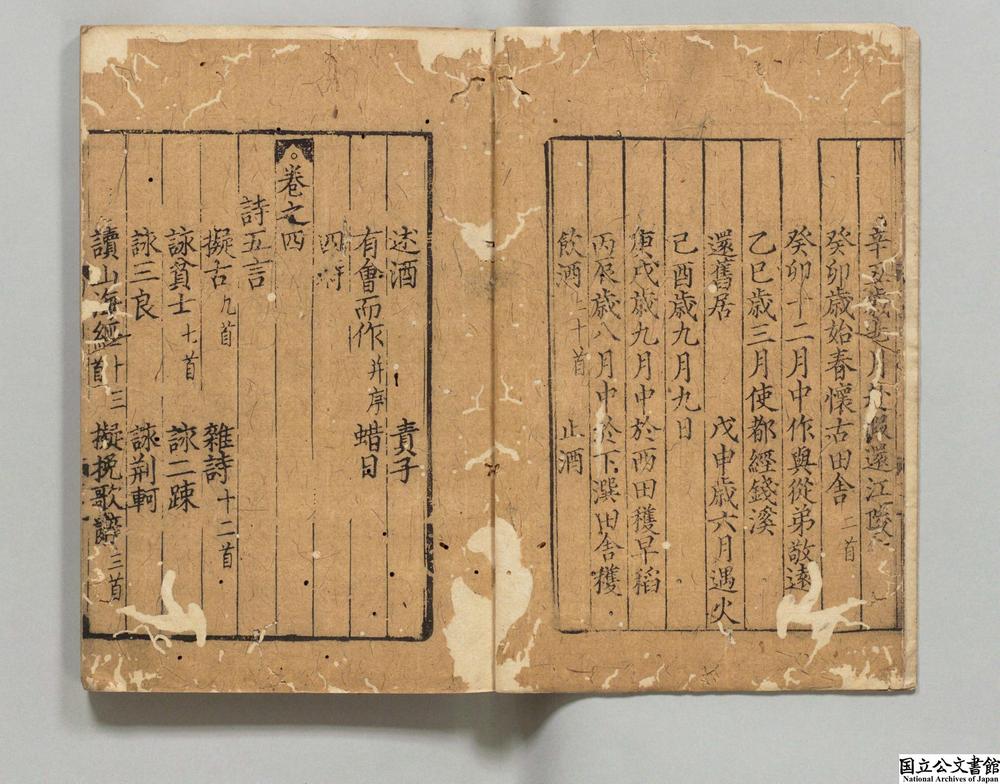 辛丑歲七月赴假還江陵
癸卯歲始春懷古田舍 二首
癸卯十二月中作與從弟敬遠
乙巳歲三月使都經錢溪
還舊居 戊申歲六月遇火
己酉歲九月九日
庚戌歲九月中於西田穫早稻
丙辰歲八月中於下潠田舍穫
飲酒 二十首 止酒
述酒 責子
有會而作 并序 蜡日
四時
卷之四
詩五言
擬古 九首 雜詩 十二首
詠貧士 七首 詠二踈
詠三良 詠荆軻
讀山海經 十三首 擬挽歌辭 三首
国立公文書館
National Archives of Japan